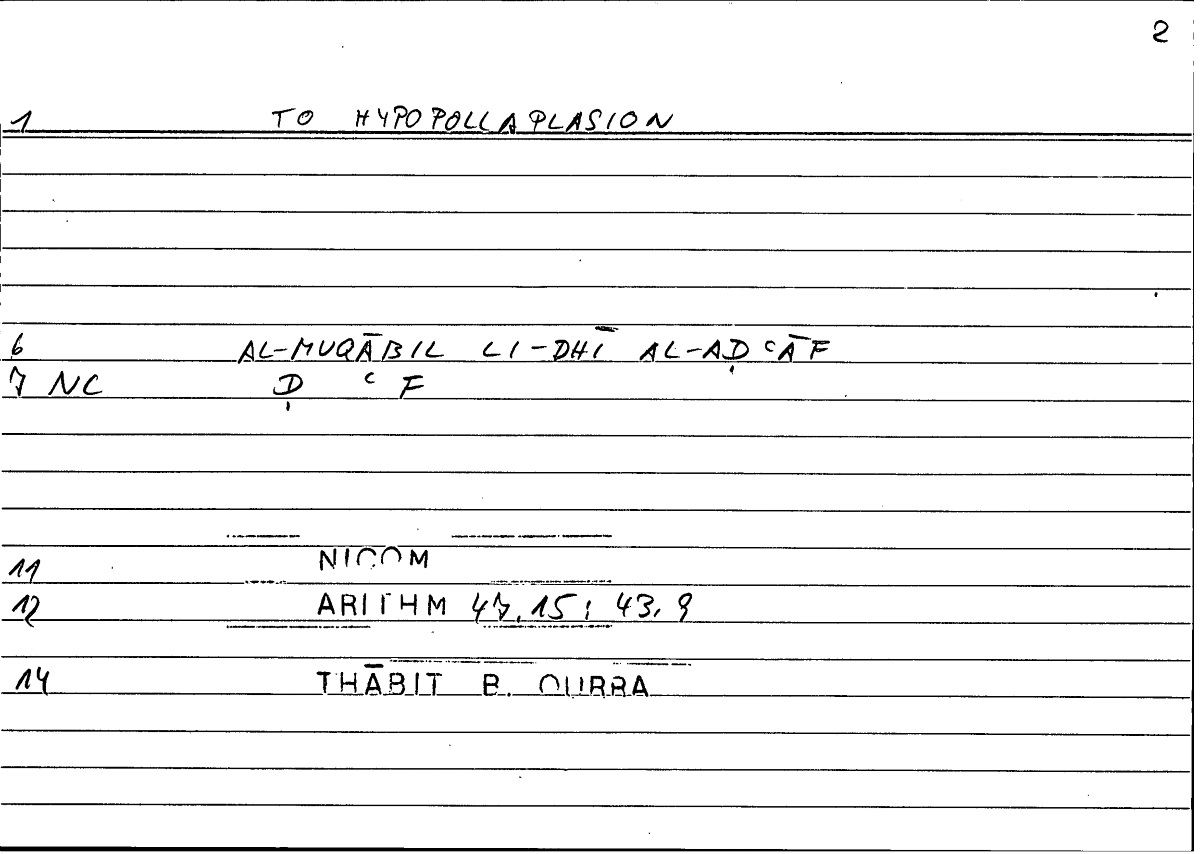 2
1 TO HYPOPOLLAPLASION
6 AL-MUQĀBIL LI-DHĪ AL-AḌʿĀF
7 NC Ḍ ʿ F
11 NICOM
12 ARITHM 47,15; 43,9
14 THĀBIT B. QURRA